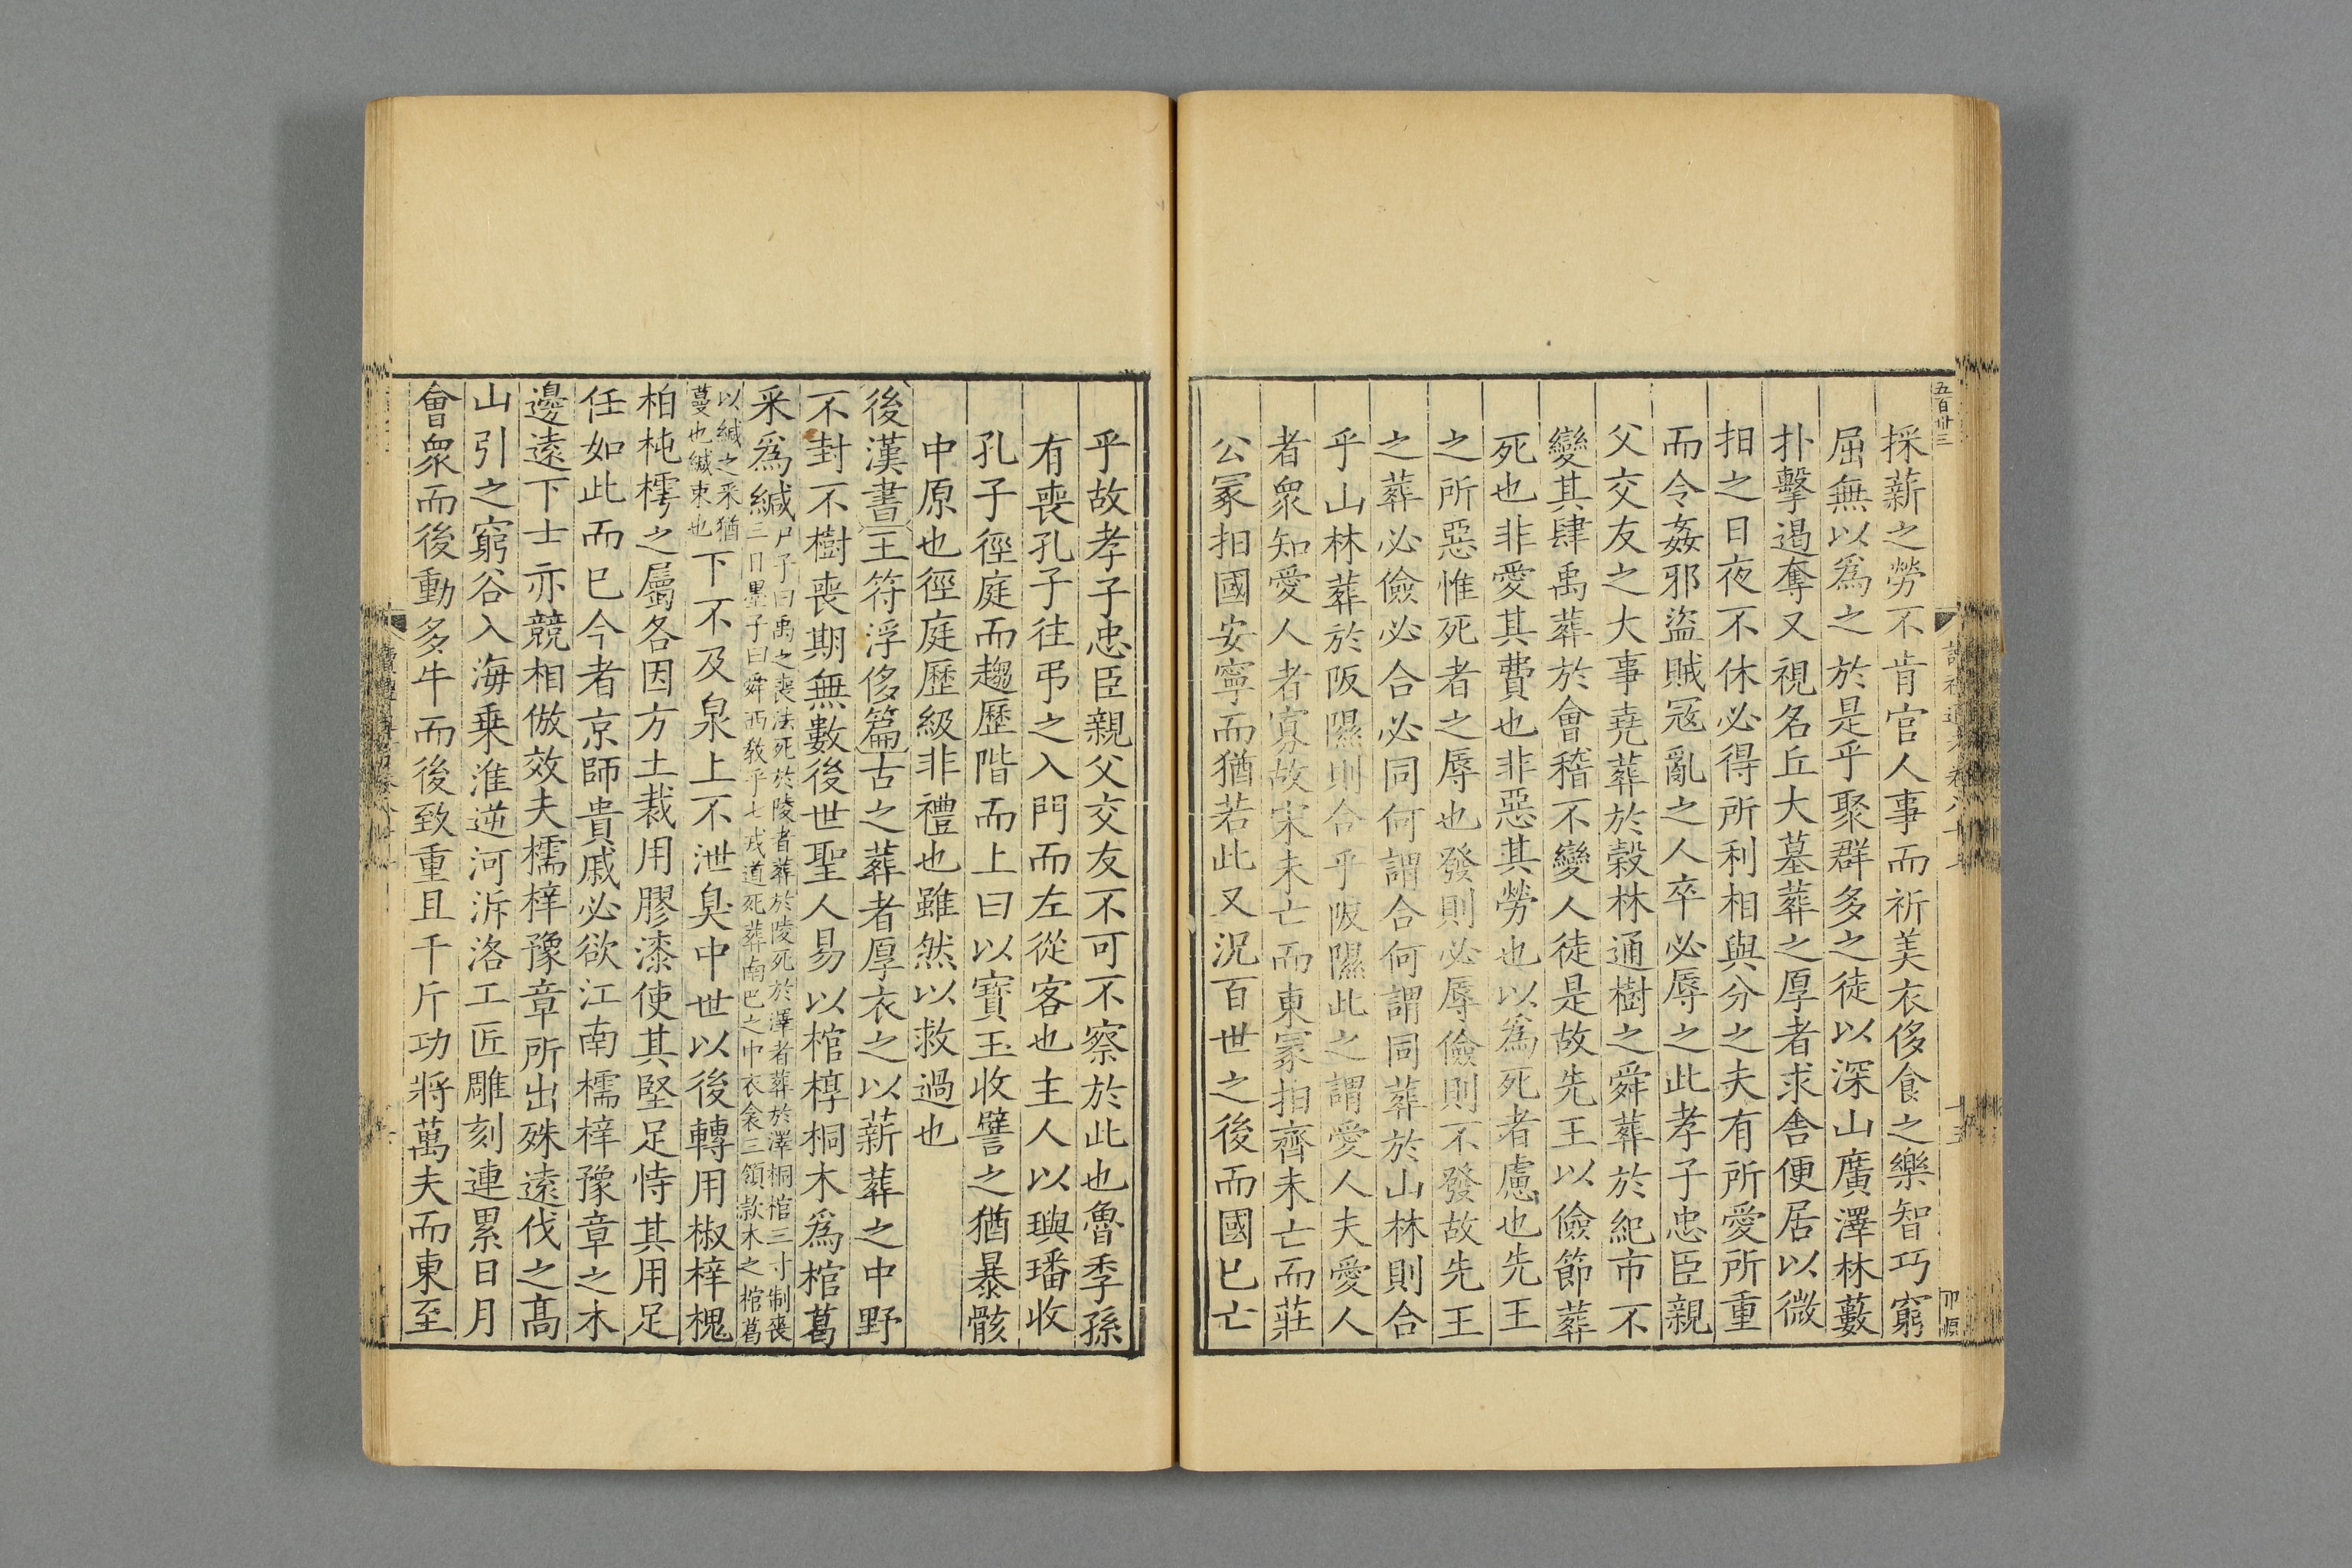 五百卅三
採薪之勞不肯官人事而祈美衣侈食之樂智巧窮
屈無以爲之於是乎聚群多之徒以深山廣澤林藪
扑擊遏奪又視名丘大墓葬之厚者求舎便居以微
抇之日夜不休必得所利相與分之夫有所愛所重
而令姦邪盜賊冦亂之人卒必辱之此孝子忠臣親
父交友之大事堯葬於榖林通樹之舜葬於紀市不
變其肆禹葬於會稽不變人徒是故先王以儉節葬
死也非愛其費也非惡其勞也以爲死者慮也先王
之所惡惟死者之辱也發則必辱儉則不發故先王
之葬必儉必合必同何謂合何謂同葬於山林則合
乎山林葬於阪隰則合乎阪隰此之謂愛人夫愛人
者衆知愛人者寡故宋未亡而東冡抇齊未亡而莊
公冡抇國安寧而猶若此又況百世之後而國已亡
乎故孝子忠臣親父交友不可不察於此也魯季孫
有喪孔子往弔之入門而左從客也主人以璵璠收
孔子徑庭而趨歷階而上曰以寶玉收譬之猶暴骸
中原也徑庭歷級非禮也雖然以救過也
後漢書王符浮侈篇古之葬者厚衣之以薪葬之中野
不封不樹喪期無數後世聖人易以棺椁桐木爲棺葛
采爲緘尸子曰禹之喪法死於陵者葬於陵死於澤者葬於澤桐棺三寸制喪
三日墨子曰舜西敎乎七戎道死葬南巴之中衣衾三領款木之棺葛
以緘之采猶
蔓也緘束也下不及泉上不泄臭中世以後轉用楸梓槐
柏杶樗之屬各因方土裁用膠漆使其堅足恃其用足
任如此而已今者京師貴戚必欲江南檽梓豫章之木
邊遠下士亦競相倣效夫檽梓豫章所出殊遠伐之髙
山引之窮谷入海乗淮逆河泝洛工匠雕刻連累日月
會衆而後動多牛而後致重且千斤功將萬夫而東至